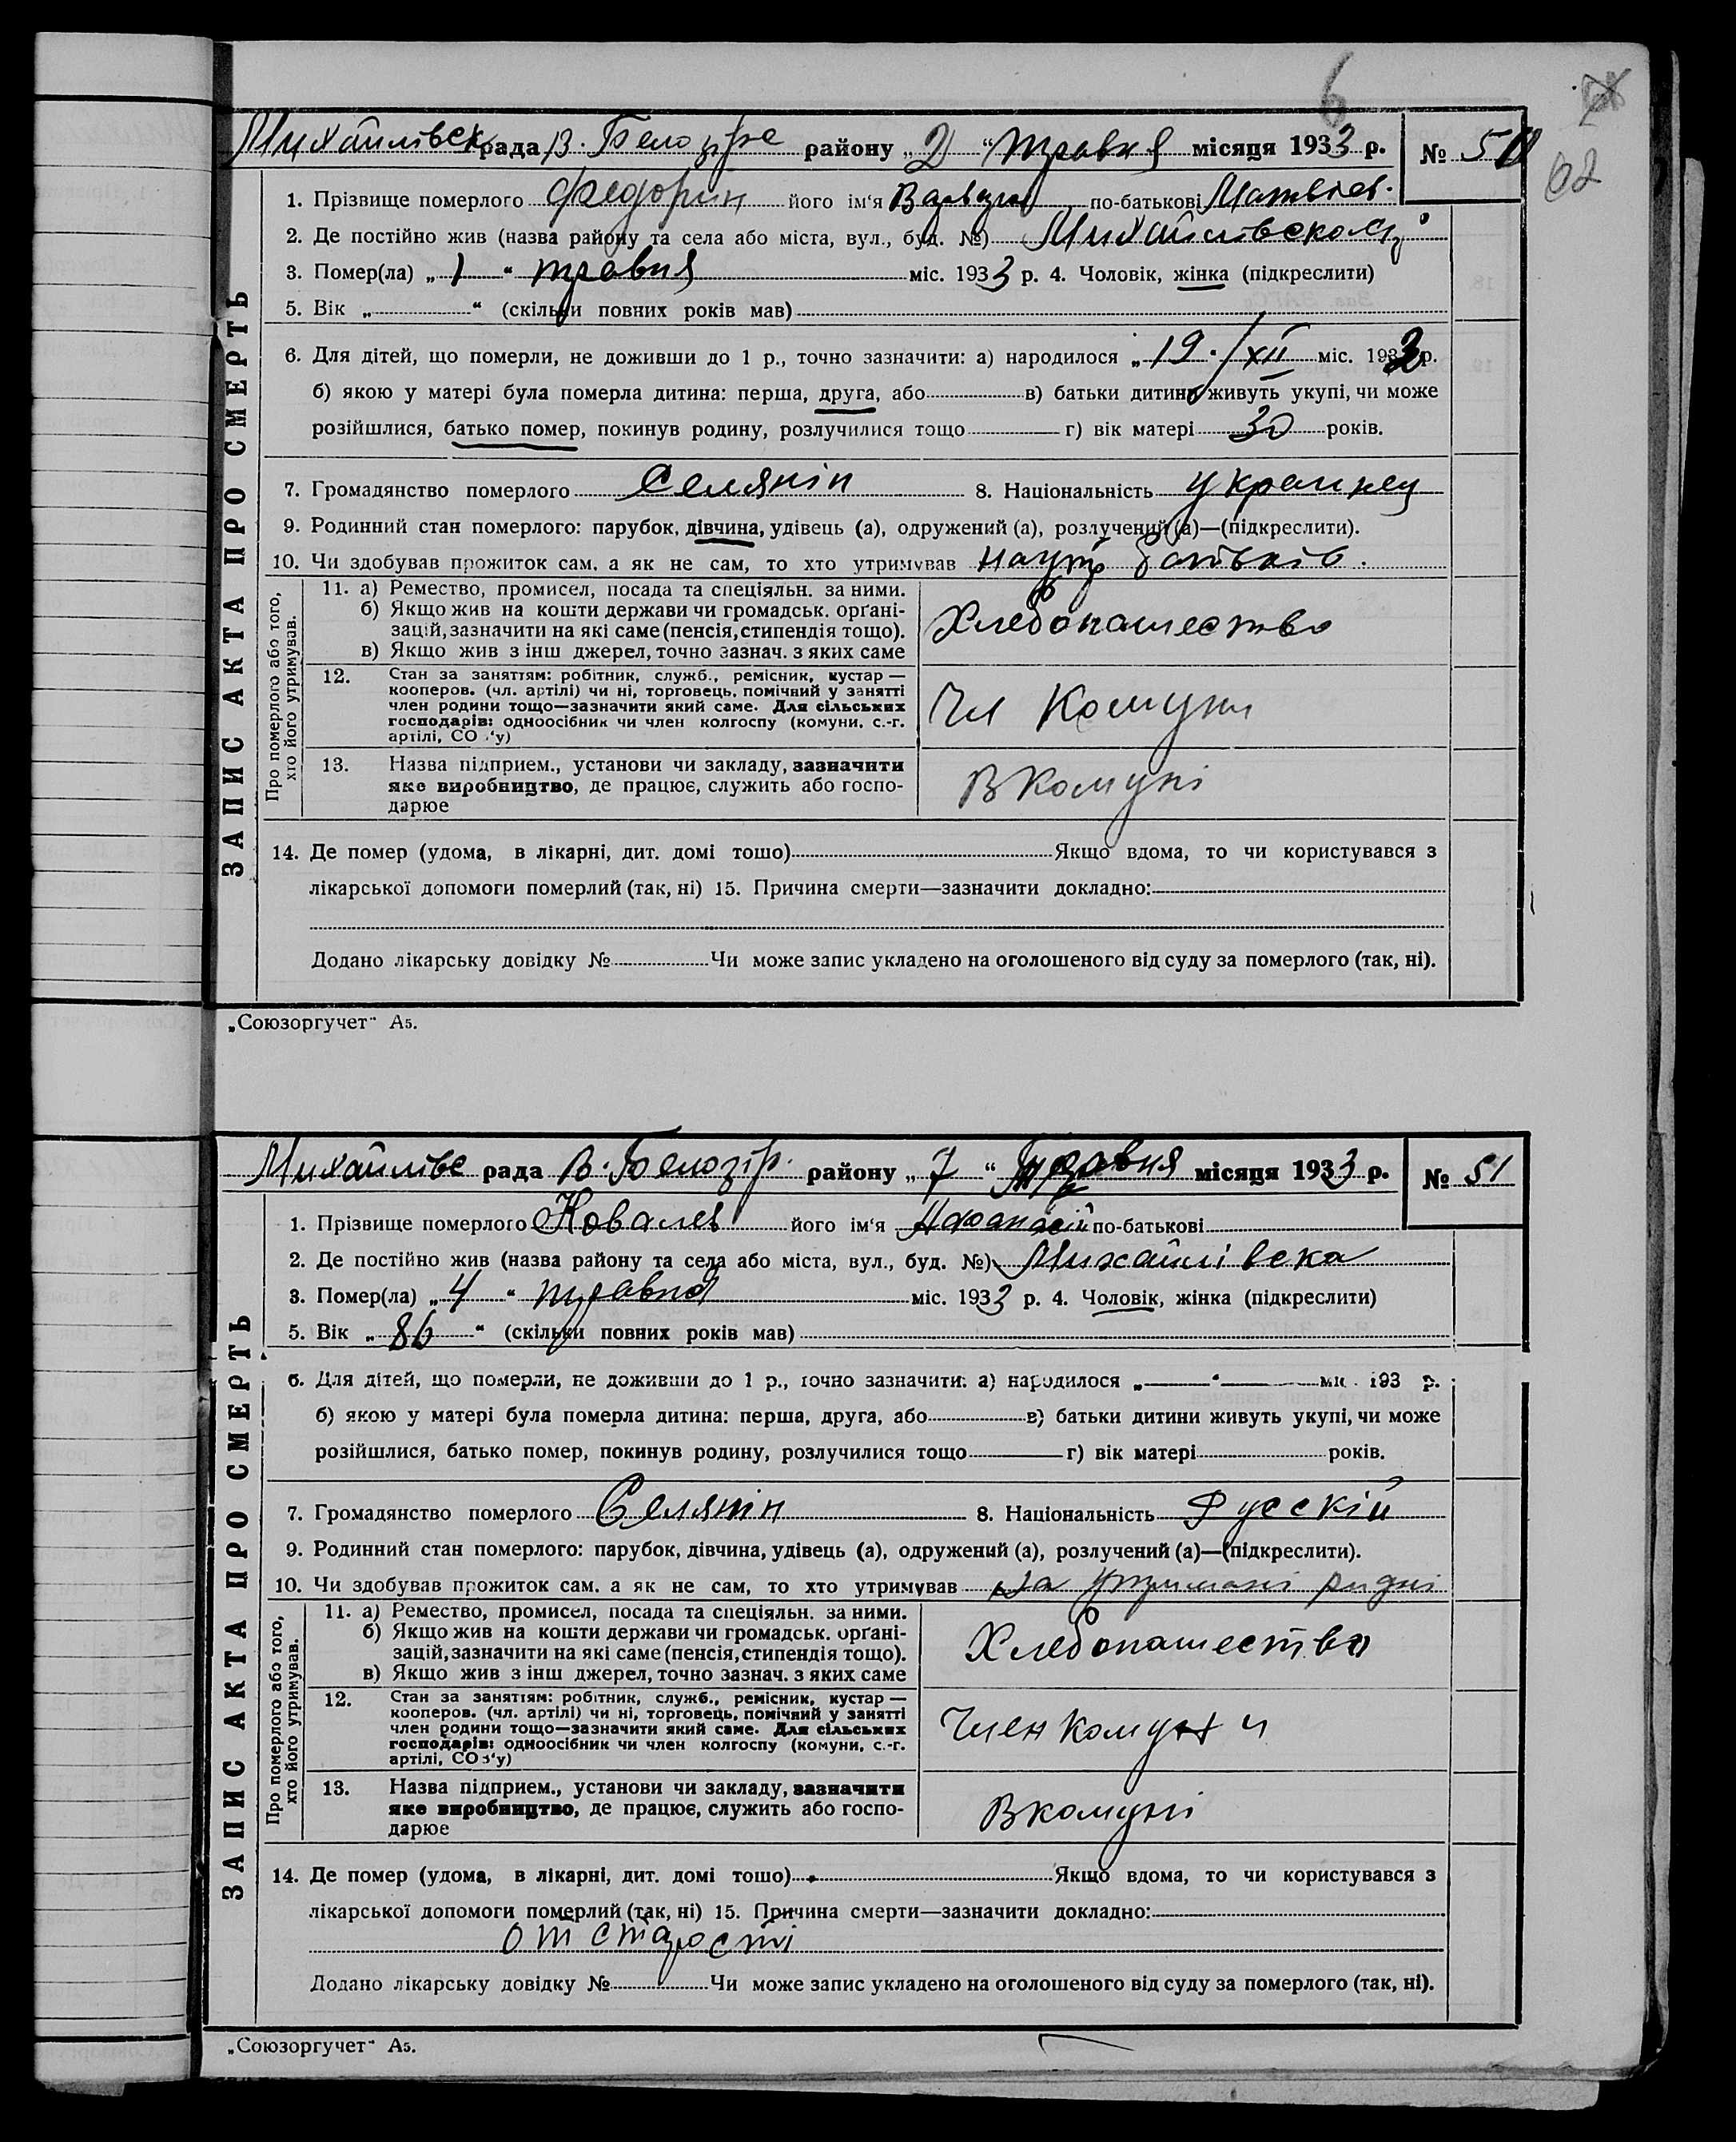 6
62
Михайлівск рада В. Белозірс району „ 2 “ травня місяця 1933 р. № 50
ЗАПИС АКТА ПРО СМЕРТЬ
1. Прізвище померлого Федорин його ім‘я Варвара по-батькові Матвієв.
2. Де постійно жив (назва району та села або міста, вул., буд. №)
3. Помер(ла) „ 1 “ травня міс. 1933 р. 4. Чоловік, жінка (підкреслити)
5. Вік „ “ (скільки повних років мав)
6. Для дітей, що померли, не доживши до 1 р., точно зазначити: а) народилося „ 19 . / XII міс. 1932 р.
б) якою у матері була померла дитина: перша, друга, або в) батьки дитини живуть укупі, чи може
розійшлися, батько помер, покинув родину, розлучилися тощо г) вік матері 30 років.
7. Громадянство померлого Селянін 8. Національність Украинец
9. Родинний стан померлого: парубок, дівчина, удівець (а), одружений (а), розлучений (а)—(підкреслити).
10. Чи здобував прожиток сам, а як не сам, то хто утримував батьків.
Про померлого або того, хто його утримував.
11. а) Ремество, промисел, посада та спеціяльн. за ними.
б) Якщо жив на кошти держави чи громадськ. орґані-
зацій, зазначити на які саме (пенсія, стипендія тощо).
в) Якщо жив з інш джерел, точно зазнач. з яких саме
Хлебопашество
12. Стан за заняттям: робітник, служб., ремісник, кустар —
кооперов. (чл. артілі) чи ні, торговець, помічний у занятті
член родини тощо—зазначити який саме. Для сільських
господарів: одноосібник чи член колгоспу (комуни, с.-г.
артілі, СО ‘у)
Чл Комуни
13. Назва підприєм., установи чи закладу, зазначити
яке виробництво, де працює, служить або госпо-
дарює
В Комуні
14. Де помер (удома, в лікарні, дит. домі тошо) Якщо вдома, то чи користувався з
лікарської допомоги померлий (так, ні) 15. Причина смерти—зазначити докладно:
Додано лікарську довідку № Чи може запис укладено на оголошеного від суду за померлого (так, ні).
„Союзоргучет“ А5.
Михайлівс рада В. Белозір. району „ 7 “ Травня місяця 1933 р. № 51
ЗАПИС АКТА ПРО СМЕРТЬ
1. Прізвище померлого Ковалев його ім‘я Афанасій по-батькові
2. Де постійно жив (назва району та села або міста, вул., буд. №) Михайлівска
3. Помер(ла) „ 4 “ травня міс. 1933 р. 4. Чоловік, жінка (підкреслити)
5. Вік „ 86 “ (скільки повних років мав)
6. Для дітей, що померли, не доживши до 1 р., точно зазначити: а) народилося „ “ міс. 193 р.
б) якою у матері була померла дитина: перша, друга, або в) батьки дитини живуть укупі, чи може
розійшлися, батько помер, покинув родину, розлучилися тощо г) вік матері років.
7. Громадянство померлого Селянін 8. Національність Русскій
9. Родинний стан померлого: парубок, дівчина, удівець (а), одружений (а), розлучений (а)—(підкреслити).
10. Чи здобував прожиток сам, а як не сам, то хто утримував На утримані ридні
Про померлого або того, хто його утримував.
11. а) Ремество, промисел, посада та спеціяльн. за ними.
б) Якщо жив на кошти держави чи громадськ. орґані-
зацій, зазначити на які саме (пенсія, стипендія тощо).
в) Якщо жив з інш джерел, точно зазнач. з яких саме
Хлебопашество
12. Стан за заняттям: робітник, служб., ремісник, кустар —
кооперов. (чл. артілі) чи ні, торговець, помічний у занятті
член родини тощо—зазначити який саме. Для сільських
господарів: одноосібник чи член колгоспу (комуни, с.-г.
артілі, СО ‘у)
Член комуни
13. Назва підприєм., установи чи закладу, зазначити
яке виробництво, де працює, служить або госпо-
дарює
В комуні
14. Де помер (удома, в лікарні, дит. домі тошо) Якщо вдома, то чи користувався з
лікарської допомоги померлий (так, ні) 15. Причина смерти—зазначити докладно:
от старості
Додано лікарську довідку № Чи може запис укладено на оголошеного від суду за померлого (так, ні).
„Союзоргучет“ А5.